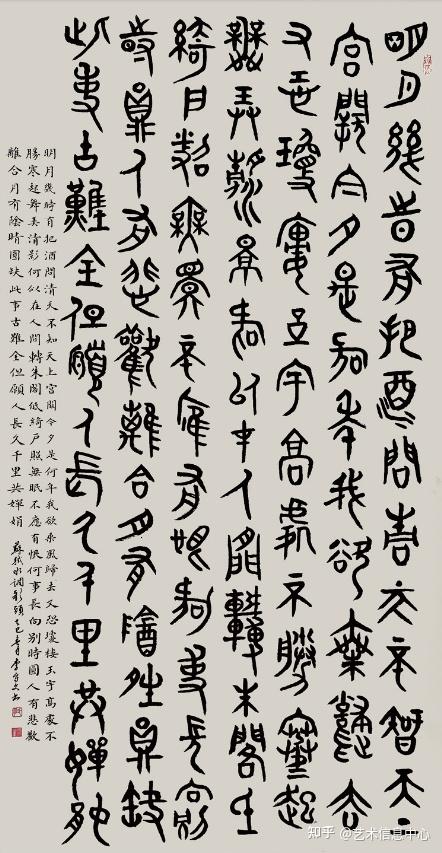 明月幾時有把酒問青天不知天上
宮闕今夕是何年我欲乘風歸去
又恐瓊樓玉宇高處不勝寒起
舞弄清影何似在人間轉朱閣低
綺戶照無眠不應有恨何事長向別
時圓人有悲歡離合月有陰晴圓缺
此事古難全但願人長久千里共嬋娟
明月幾時有把酒問清天不知天上宮闕今夕是何年我欲乘風歸去又恐瓊樓玉宇高處不
勝寒起舞弄清影何似在人間轉朱閣低綺户照無眠不應有恨何事長向別時圓人有悲歡
離合月有陰晴圓缺此事古難全但願人長久千里共嬋娟 蘇軾水調歌頭 乙巳
知乎 @艺术信息中心